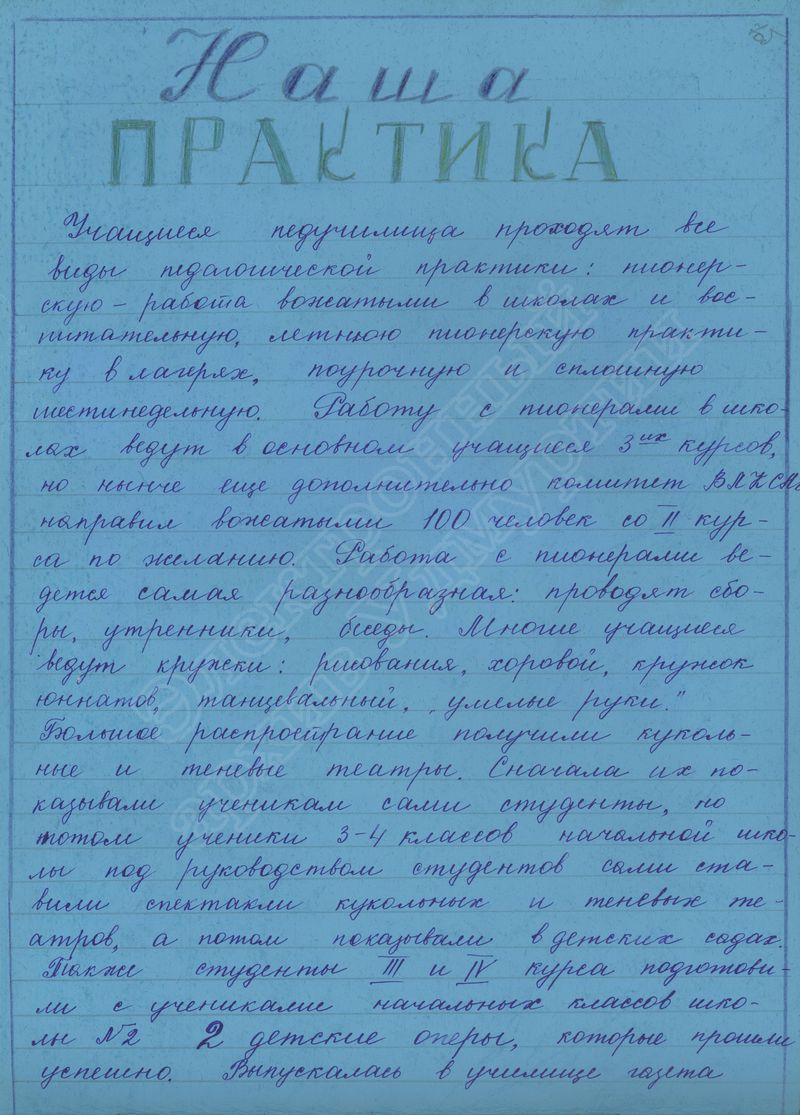 Наша
ПРАКТИКА
Учащиеся педучилища проходят все
виды педагогической практики: пионер-
скую – работа вожатыми в школах и вос-
питательную, летнюю пионерскую практи-
ку в лагерях, поурочную и сплошную
шестинедельную. Работу с пионерами в шко-
лах ведут в основном учащиеся 3их курсов,
но нынче еще дополнительно комитет ВЛКСМ
направил вожатыми 100 человек со II кур-
са по желанию. Работа с пионерами ве-
дется самая разнообразная: проводят сбо-
ры, утренники, беседы. Многие учащиеся
ведут кружки: рисования, хоровой, кружок
юннатов, танцевальный, „умелые руки."
Большое распространие получили куколь-
ные и теневые театры. Сначала их по-
казывали ученикам сами студенты, но
потом ученики 3-4 классов начальной шко-
лы под руководством студентов сами ста-
вили спектакли кукольных и теневых те-
атров, а потом показывали в детских садах.
Также студенты III и IV курса подготови-
ли с учениками начальных классов шко-
лы №2 2 детские оперы, которые прошли
успешно. Выпускалась в училище газета
Электронный
архив Удмуртии